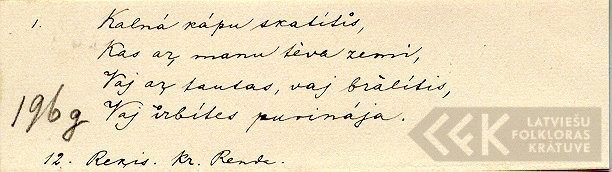 1. Kalná kápu skatítís,
Kas az manu tèva zemi,
Vaj az tautas, vaj brālítis,
Vaj írbítes purinája.
196g
12. Reņis. Kr. Renda.
LATVIEŠU
FOLKLORAS
KRĀTUVE